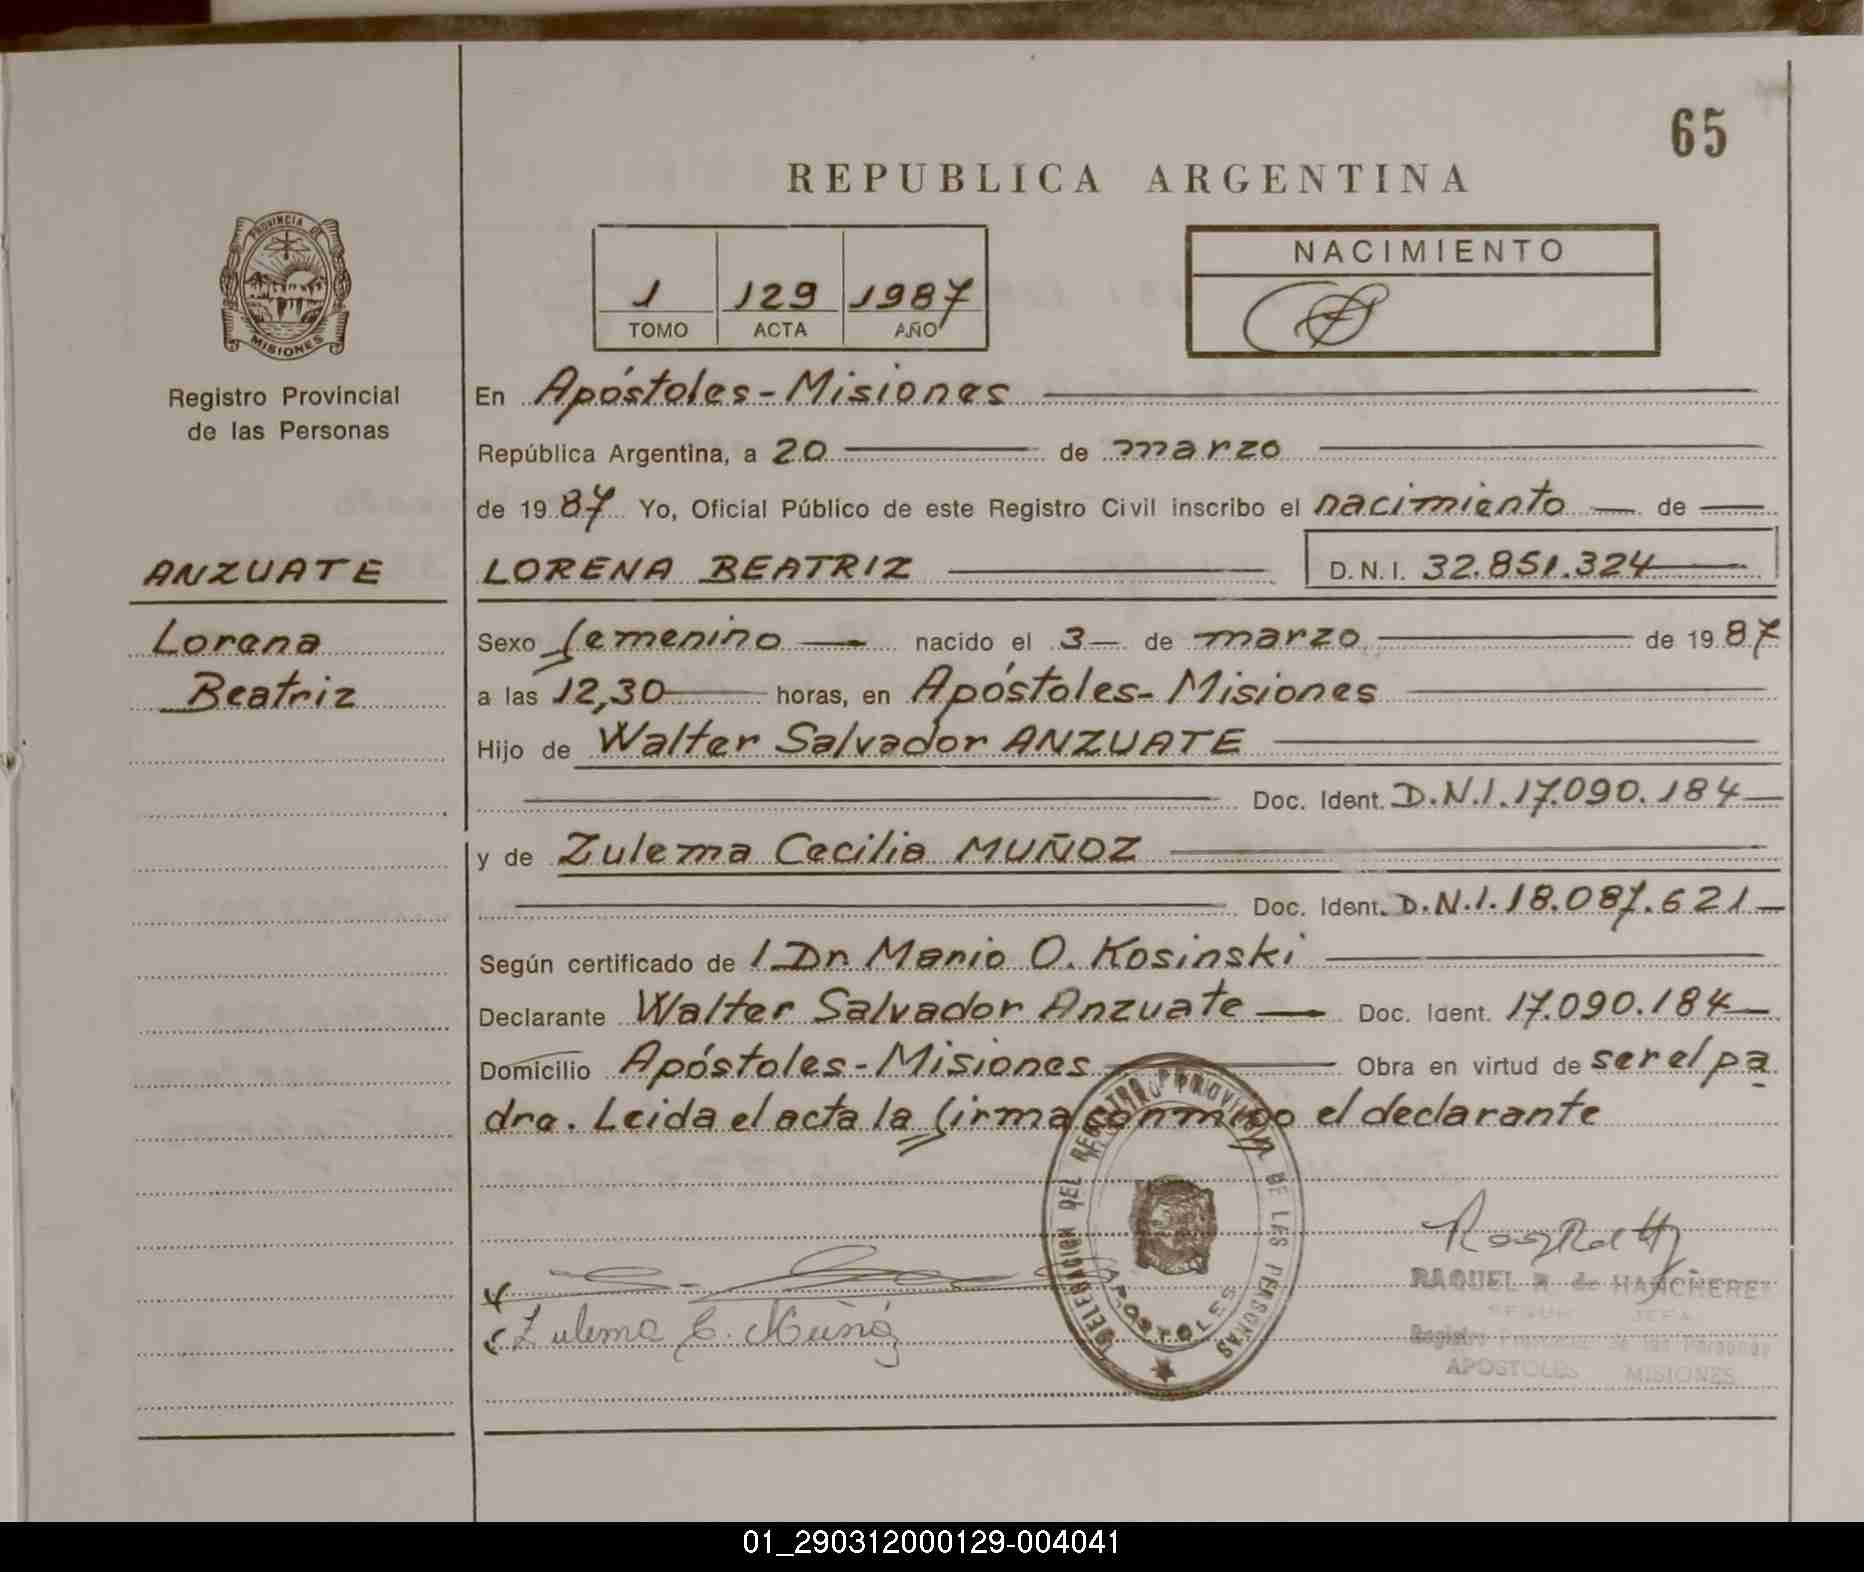 65
REPUBLICA ARGENTINA
PROVINCIA DE
MISIONES
Registro Provincial
de las Personas
1 129 1987
TOMO ACTA AÑO
NACIMIENTO
En Apóstoles-Misiones
República Argentina, a 20 de marzo
de 1987 Yo, Oficial Público de este Registro Civil inscribo el nacimiento de
ANZUATE LORENA BEATRIZ D.N.I. 32.851.324
Lorena Sexo femenino nacido el 3 de marzo de 1987
Beatriz a las 12,30 horas, en Apóstoles-Misiones
Hijo de Walter Salvador ANZUATE
Doc. Ident. D.N.I. 17.090.184
y de Zulema Cecilia MUÑOZ
Doc. Ident. D.N.I. 18.087.621
Según certificado de l Dr. Mario O. Kosinski
Declarante Walter Salvador Anzuate Doc. Ident. 17.090.184
Domicilio Apóstoles-Misiones Obra en virtud de ser el pa
dre. Leida el acta la firma conmigo el declarante
DELEGACION DEL REGISTRO PROVINCIAL DE LES PERSONAS
APOSTOLES
RAQUEL R. de HANCHERE
JEFA
Registro Provincial de las Personas
APOSTOLES MISIONES
Zulema C. Muñoz
01_290312000129-004041